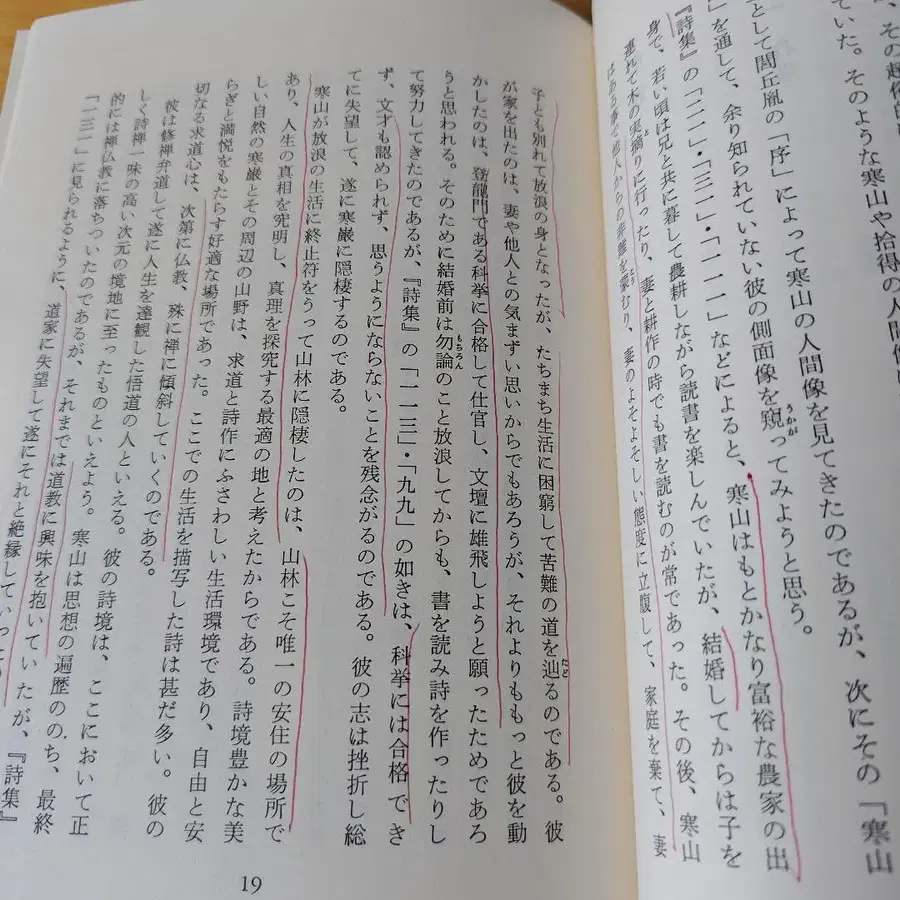 、その超俗的
ていた。そのような寒山や拾得の人間像
として閭丘胤の「序」によって寒山の人間像を見てきたのであるが、次にその「寒山
」を通して、余り知られていない彼の側面像を窺ってみようと思う。
『詩集』の「二一」・「三一」・「一一一」などによると、寒山はもとかなり富裕な農家の出
身で、若い頃は兄と共に暮して農耕しながら読書を楽しんでいたが、結婚してからは子を
連れて木の実摘りに行ったり、妻と耕作の時でも書を読むのが常であった。その後、寒山
はある事で他人からの非難を蒙むり、妻のよそよそしい態度に立腹して、家庭を棄て、妻
子とも別れて放浪の身となったが、たちまち生活に困窮して苦難の道を辿るのである。彼
が家を出たのは、妻や他人との気まずい思いからでもあろうが、それよりももっと彼を動
かしたのは、登龍門である科挙に合格して仕官し、文壇に雄飛しようと願ったためであろ
うと思われる。そのために結婚前は勿論のこと放浪してからも、書を読み詩を作ったりし
て努力してきたのであるが、『詩集』の「一一三」・「九九」の如きは、科挙には合格でき
ず、文才も認められず、思うようにならないことを残念がるのである。彼の志は挫折し総
てに失望して、遂に寒巌に隠棲するのである。
寒山が放浪の生活に終止符をうって山林に隠棲したのは、山林こそ唯一の安住の場所で
あり、人生の真相を究明し、真理を探究する最適の地と考えたからである。詩境豊かな美
しい自然の寒巌とその周辺の山野は、求道と詩作にふさわしい生活環境であり、自由と安
らぎと満悦をもたらす好適な場所であった。ここでの生活を描写した詩は甚だ多い。彼の
切なる求道心は、次第に仏教、殊に禅に傾斜していくのである。
彼は修禅弁道して遂に人生を達観した悟道の人といえる。彼の詩境は、ここにおいて正
しく詩禅一味の高い次元の境地に至ったものといえよう。寒山は思想の遍歴ののち、最終
的には禅仏教に落ちついたのであるが、それまでは道教に興味を抱いていたが、『詩集』
「一三一」に見られるように、道家に失望して遂にそれと絶縁していった
19